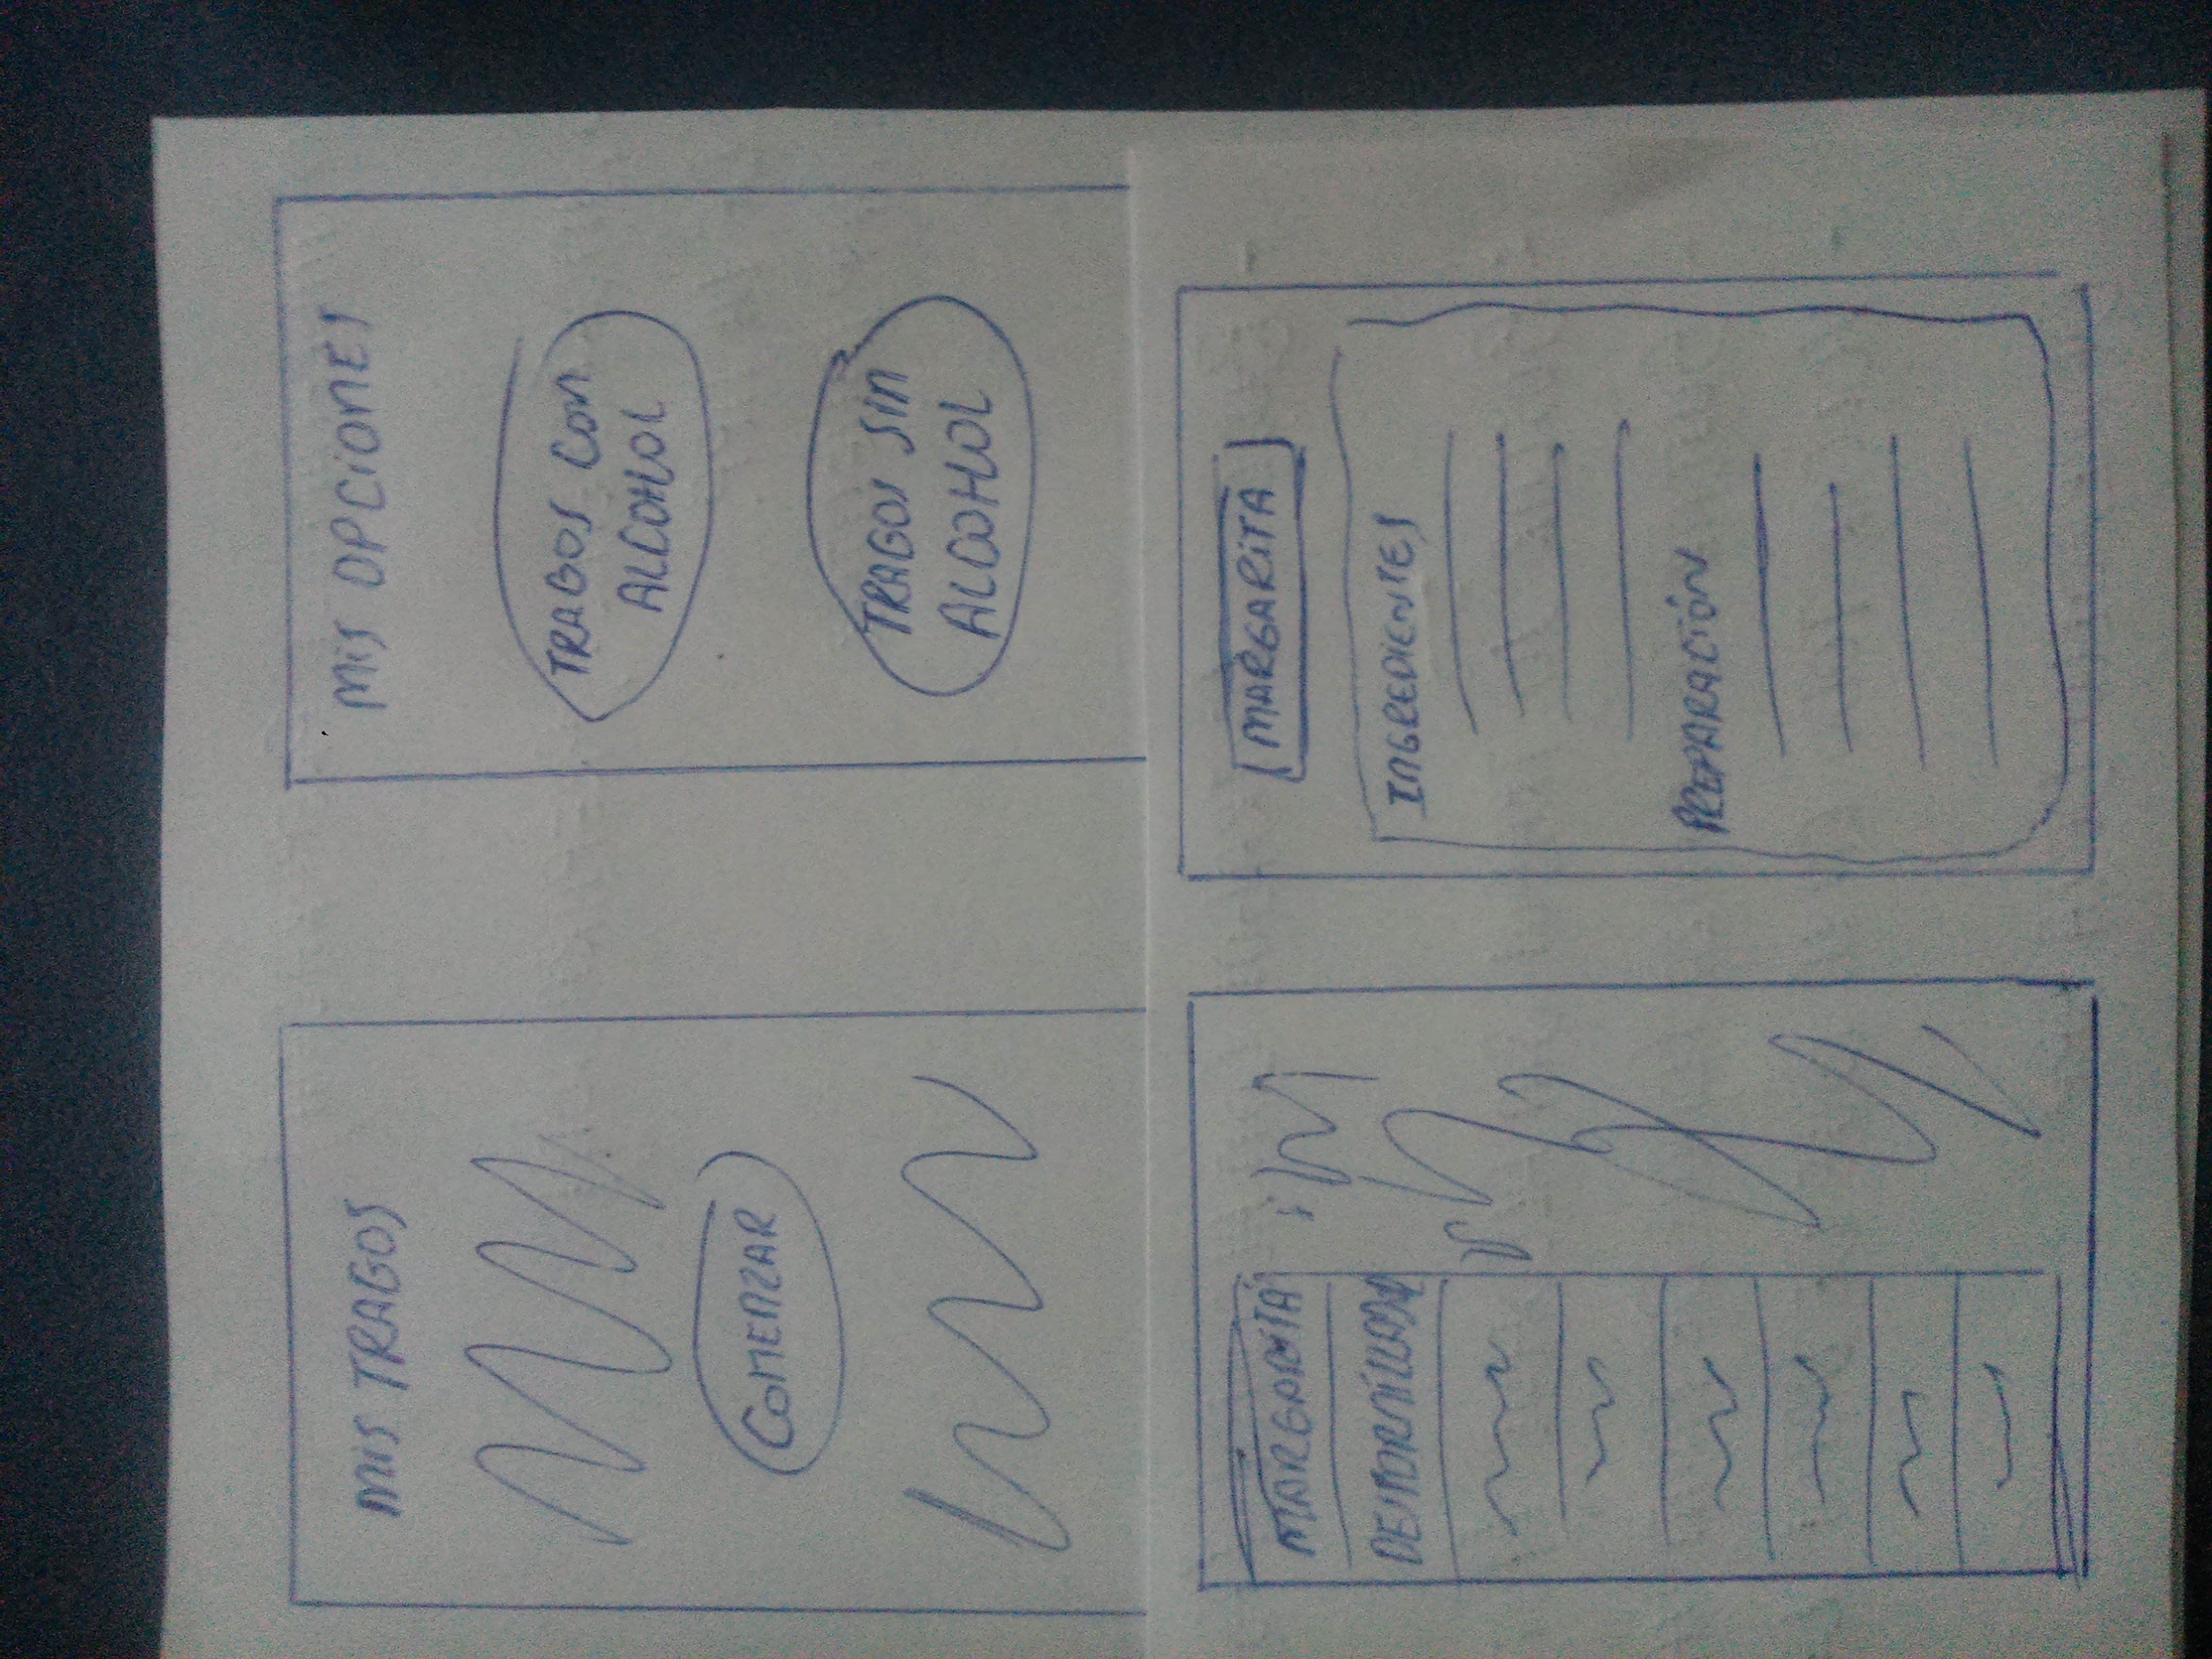 MIS TRAGOS
COMENZAR
MIS OPCIONES
TRAGOS CON
ALCOHOL
TRAGOS SIN
ALCOHOL
MARGARITA
DESTORNILLADOR
MARGARITA
INGREDIENTES
PREPARACIÓN